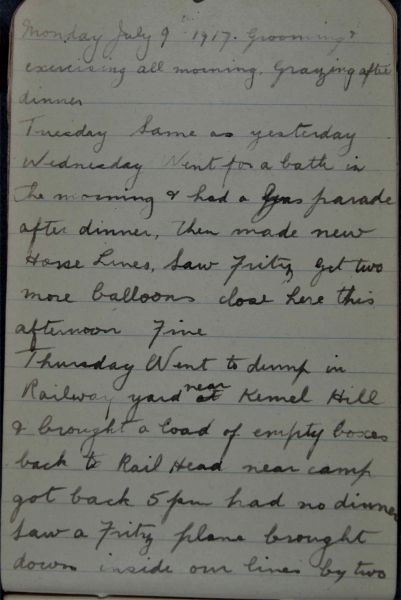 Monday July 9th 1917. Grooming &
exercising all morning. Grazing after
dinner
Tuesday Same as yesterday
Wednesday Went for a bath in
the morning & had a Gas parade
after dinner, then made new
Horse Lines, Saw Fritz get two
more balloons close here this
afternoon Fine
Thursday Went to dump in
Railway yard near Kemel Hill
& brought a load of empty boxes
back to Rail Head near camp
got back 5 pm had no dinner
saw a Fritz plane brought
down inside our lines by two